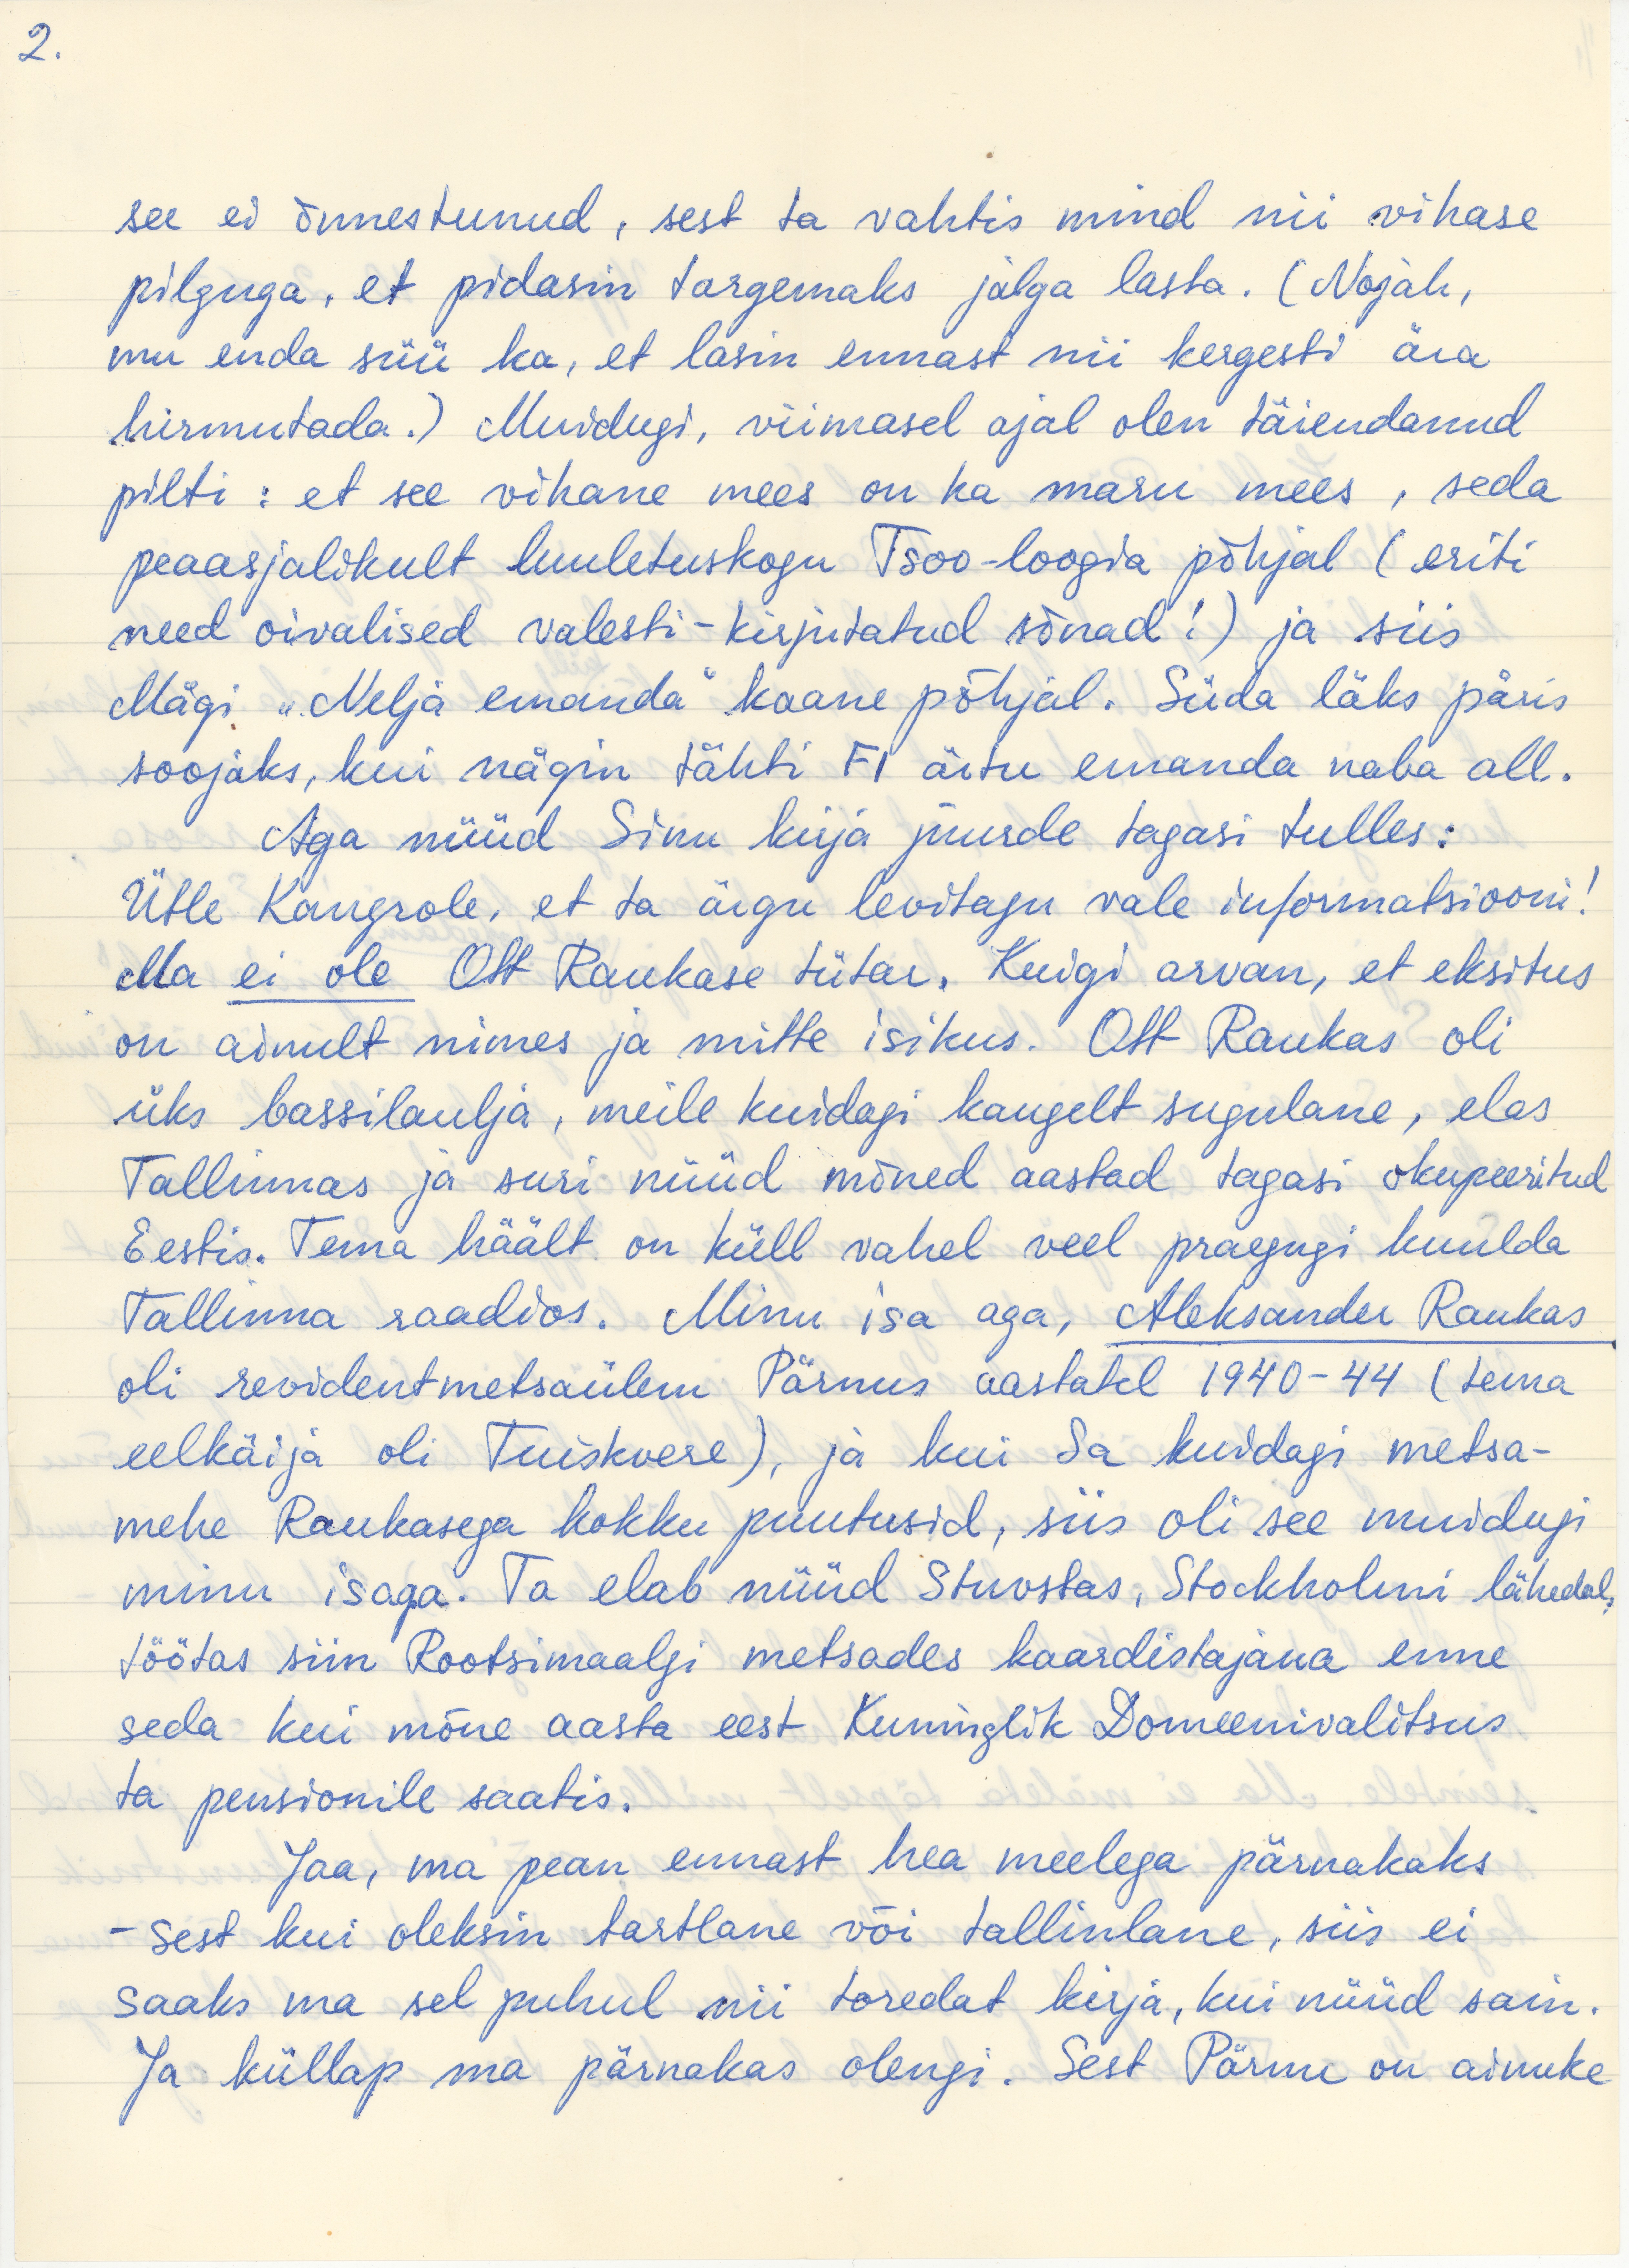 2.
see ei õnnestunud, sest ta vahtis mind nii vihase
pilguga, et pidasin targemaks jalga lasta. (Nojah,
mu enda süü ka, et lasin ennast nii kergesti ära
hirmutada.) Muidugi, viimasel ajal olen täiendanud
pilti: et see vihane mees on ka maru mees, seda
peaasjalikult luuletuskogu Tsoo-loogia põhjal (eriti
need oivalised valesti-kirjutatud sõnad!) ja siis
Mägi „Nelja emanda" kaane põhjal. Süda läks päris
soojaks, kui nägin tähti FI ärtu emanda naba all.
Aga nüüd Sinu kirja juurde tagasi tulles:
Ütle Kangrole, et ta ärgu levitagu vale informatsiooni!
Ma ei ole Ott Raukase tütar. Kuigi arvan, et eksitus
on ainult nimes ja mitte isikus. Ott Raukas oli
üks bassilaulja, meile kuidagi kaugelt sugulane, elas
Tallinnas ja suri nüüd mõned aastad tagasi okupeeritud
Eestis. Tema häält on küll vahel veel praegugi kuulda
Tallinna raadios. Minu isa aga, Aleksander Raukas
oli revidentmetsaülem Pärnus aastatel 1940-44 (tema
eelkäija oli Tuiskvere), ja kui Sa kuidagi metsa-
mehe Raukasega kokku puutusid, siis oli see muidugi
minu isaga. Ta elab nüüd Stuvstas, Stockholmi lähedal,
töötas siin Rootsimaalgi metsades kaardistajana enne
seda kui mõne aasta eest Kuninglik Domeenivalitsus
ta pensionile saatis.
Jaa, ma pean ennast hea meelega pärnakaks
- sest kui oleksin tartlane või tallinlane, siis ei
saaks ma sel puhul nii toredat kirja, kui nüüd sain.
Ja küllap ma pärnakas olengi. Sest Pärnu on ainuke